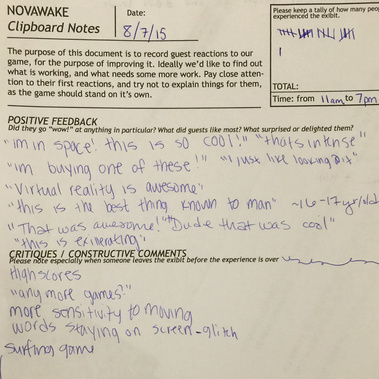 NOVAWAKE
Clipboard Notes
Date:
8/7/15
Please keep a tally of how many peo
experienced the exibit.
TOTAL:
Time: from 11am to 7pm
The purpose of this document is to record guest reactions to our
game, for the purpose of improving it. Ideally we'd like to find out
what is working, and what needs some more work. Pay close atten-
tion to their first reactions, and try not to explain things for them,
as the game should stand on it's own.
POSITIVE FEEDBACK
Did they go "wow!" at anything in particular? What did guests like most? What surprised or delighted them?
"im in space! this is so cool!" "thats intense"
"im buying one of these!" "I just like looking at it"
"Virtual reality is awesome"
"this is the best thing known to man" ~16-17 yr/old
"That was awesome!" "Dude that was cool"
"this is exilerating"
CRITIQUES / CONSTRUCTIVE COMMENTS
Please note especially when someone leaves the exibit before the experience is over
Highscores
"any more games?"
more sensitivity to moving
words staying on screen - glitch
surfing game